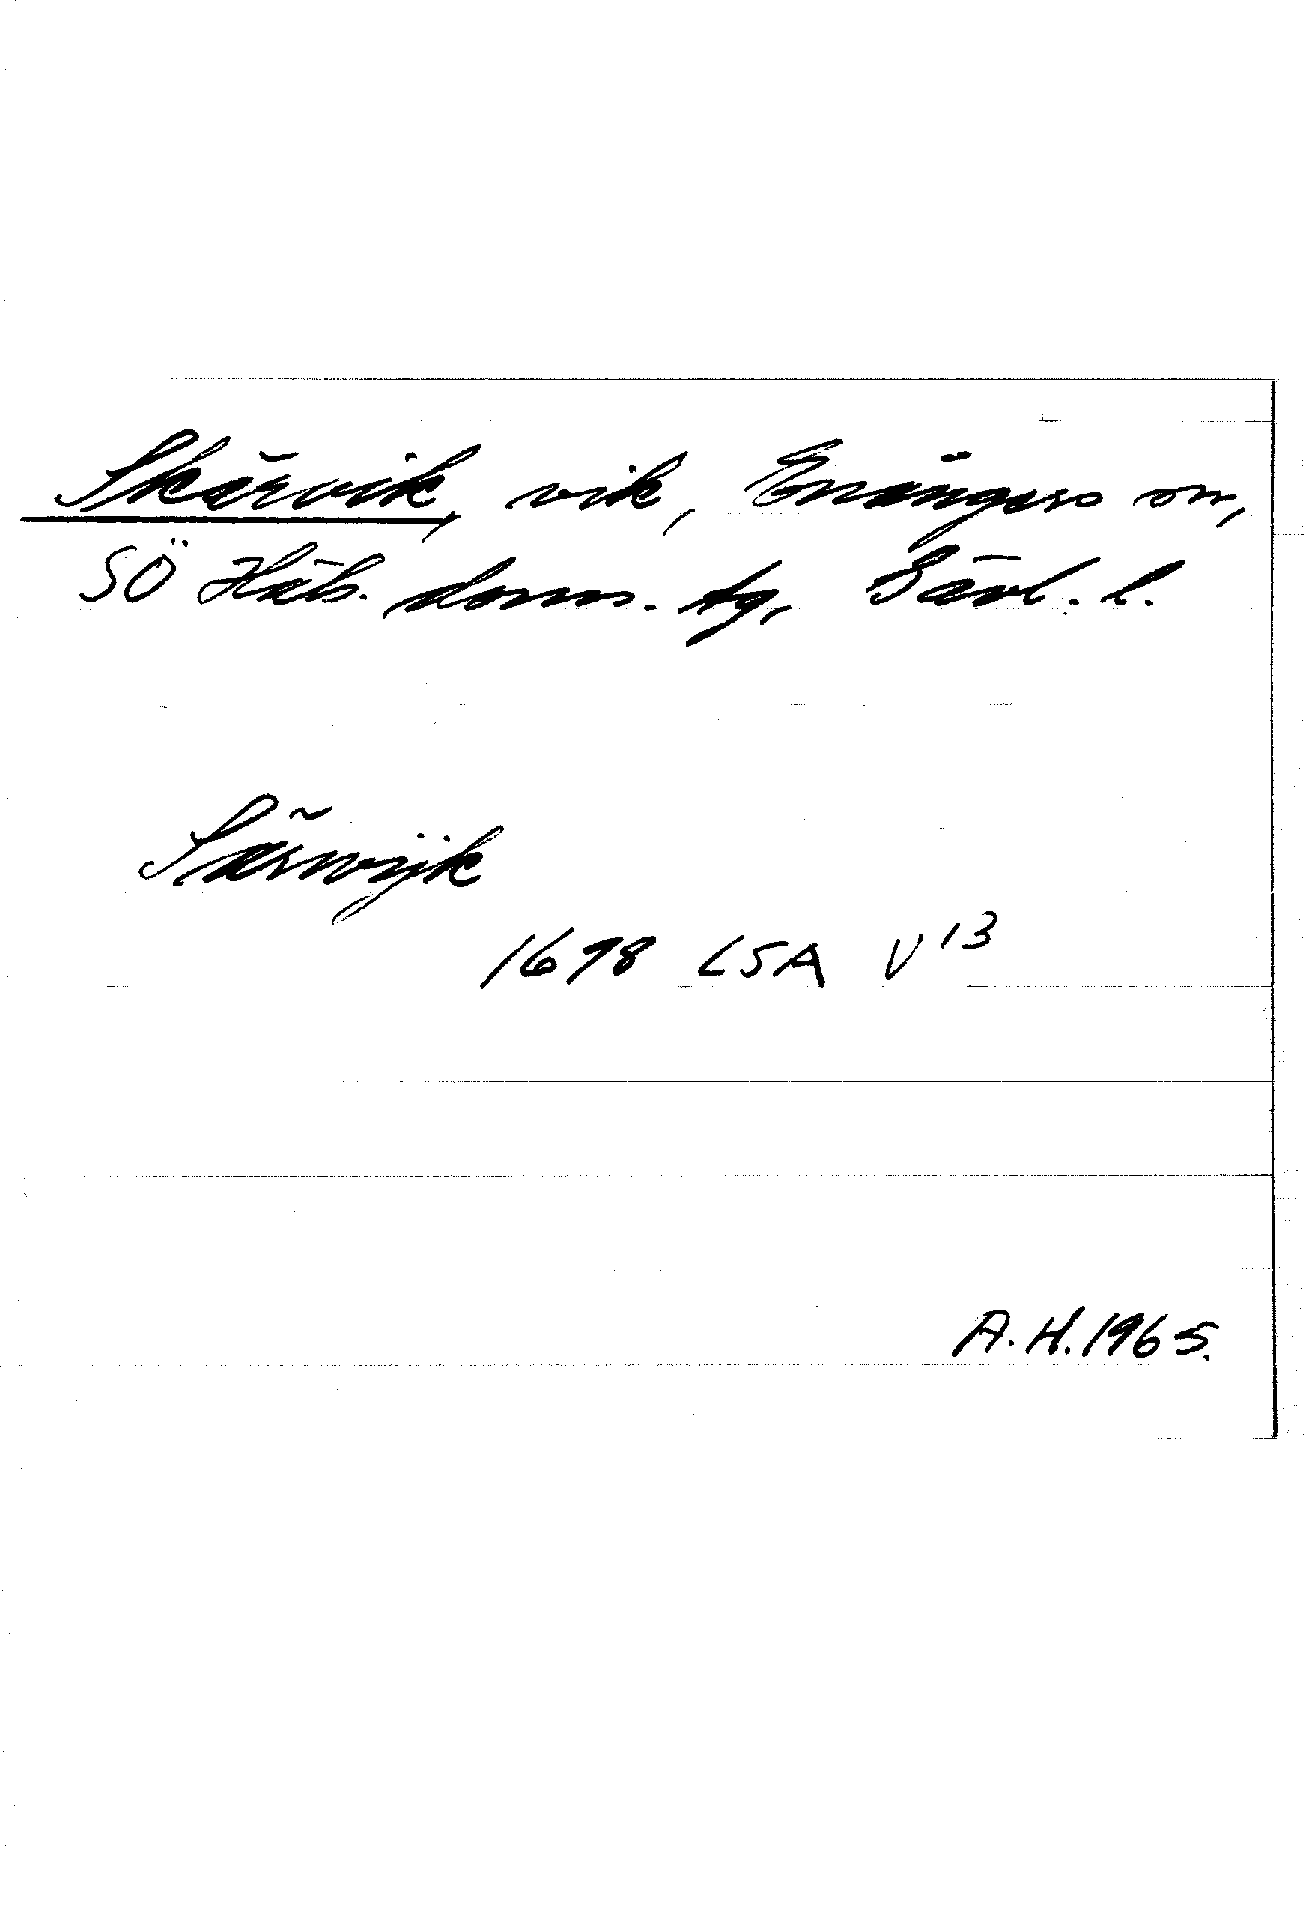 Skärvik, vik, Enångers sn,
SÖ Häls. doms. tg, Gävl. l.
Särwijk
1678 LSA V 13
A.H. 1965.